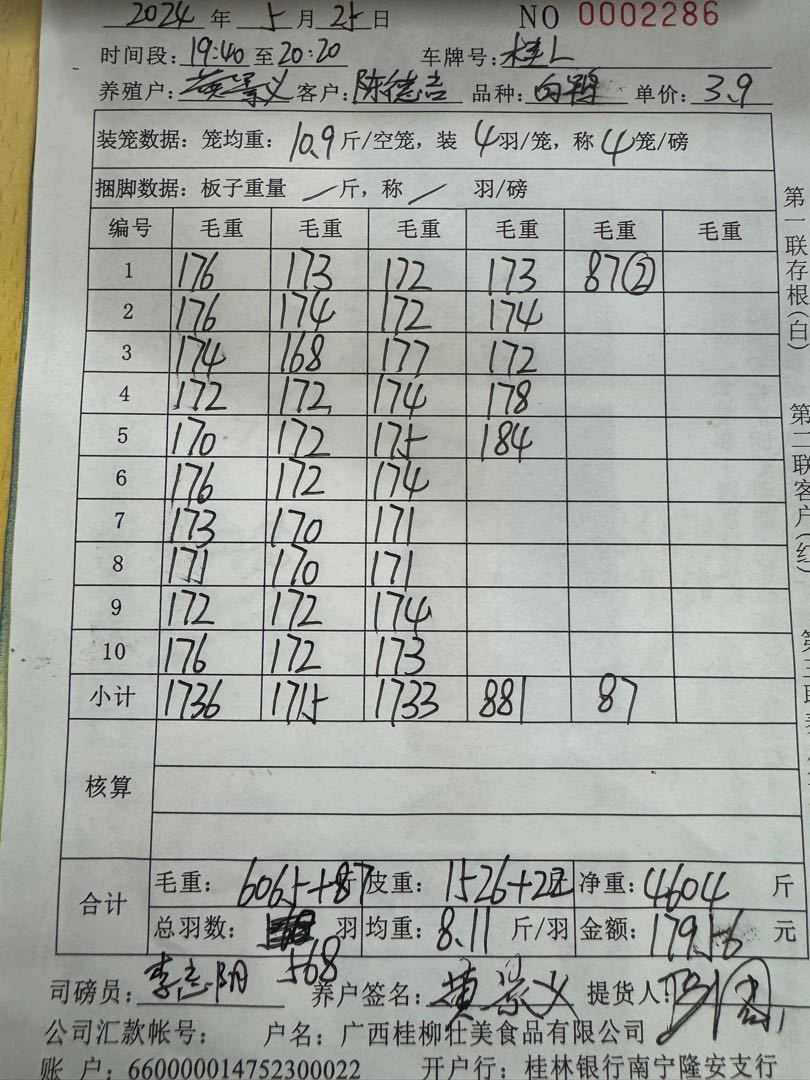 2024 年 5 月 25 日 NO 0002286
时间段: 19:40 至 20:20 车牌号: 桂L
养殖户: 黄景义 客户: 陈德吉 品种: 白鸭 单价: 3.9
装笼数据: 笼均重: 10.9 斤/空笼, 装 4 羽/笼, 称 4 笼/磅
捆脚数据: 板子重量 / 斤, 称 / 羽/磅
编号 毛重 毛重 毛重 毛重 毛重 毛重
1 176 173 172 173 87②
2 176 174 172 174
3 174 168 177 172
4 172 172 174 178
5 170 172 175 184
6 176 172 174
7 173 170 171
8 171 170 171
9 172 172 174
10 176 172 173
小计 1736 1715 1733 881 87
核算
合计
毛重: 6065+87 皮重: 1526+22 净重: 4604 斤
总羽数: 568 羽 均重: 8.11 斤/羽 金额: 17956 元
司磅员: 李志阴 养户签名: 黄景义 提货人:
公司汇款帐号: 户名: 广西桂柳壮美食品有限公司
账 户: 660000014752300022 开户行: 桂林银行南宁隆安支行
第一联存根(白)
第二联客户(红)